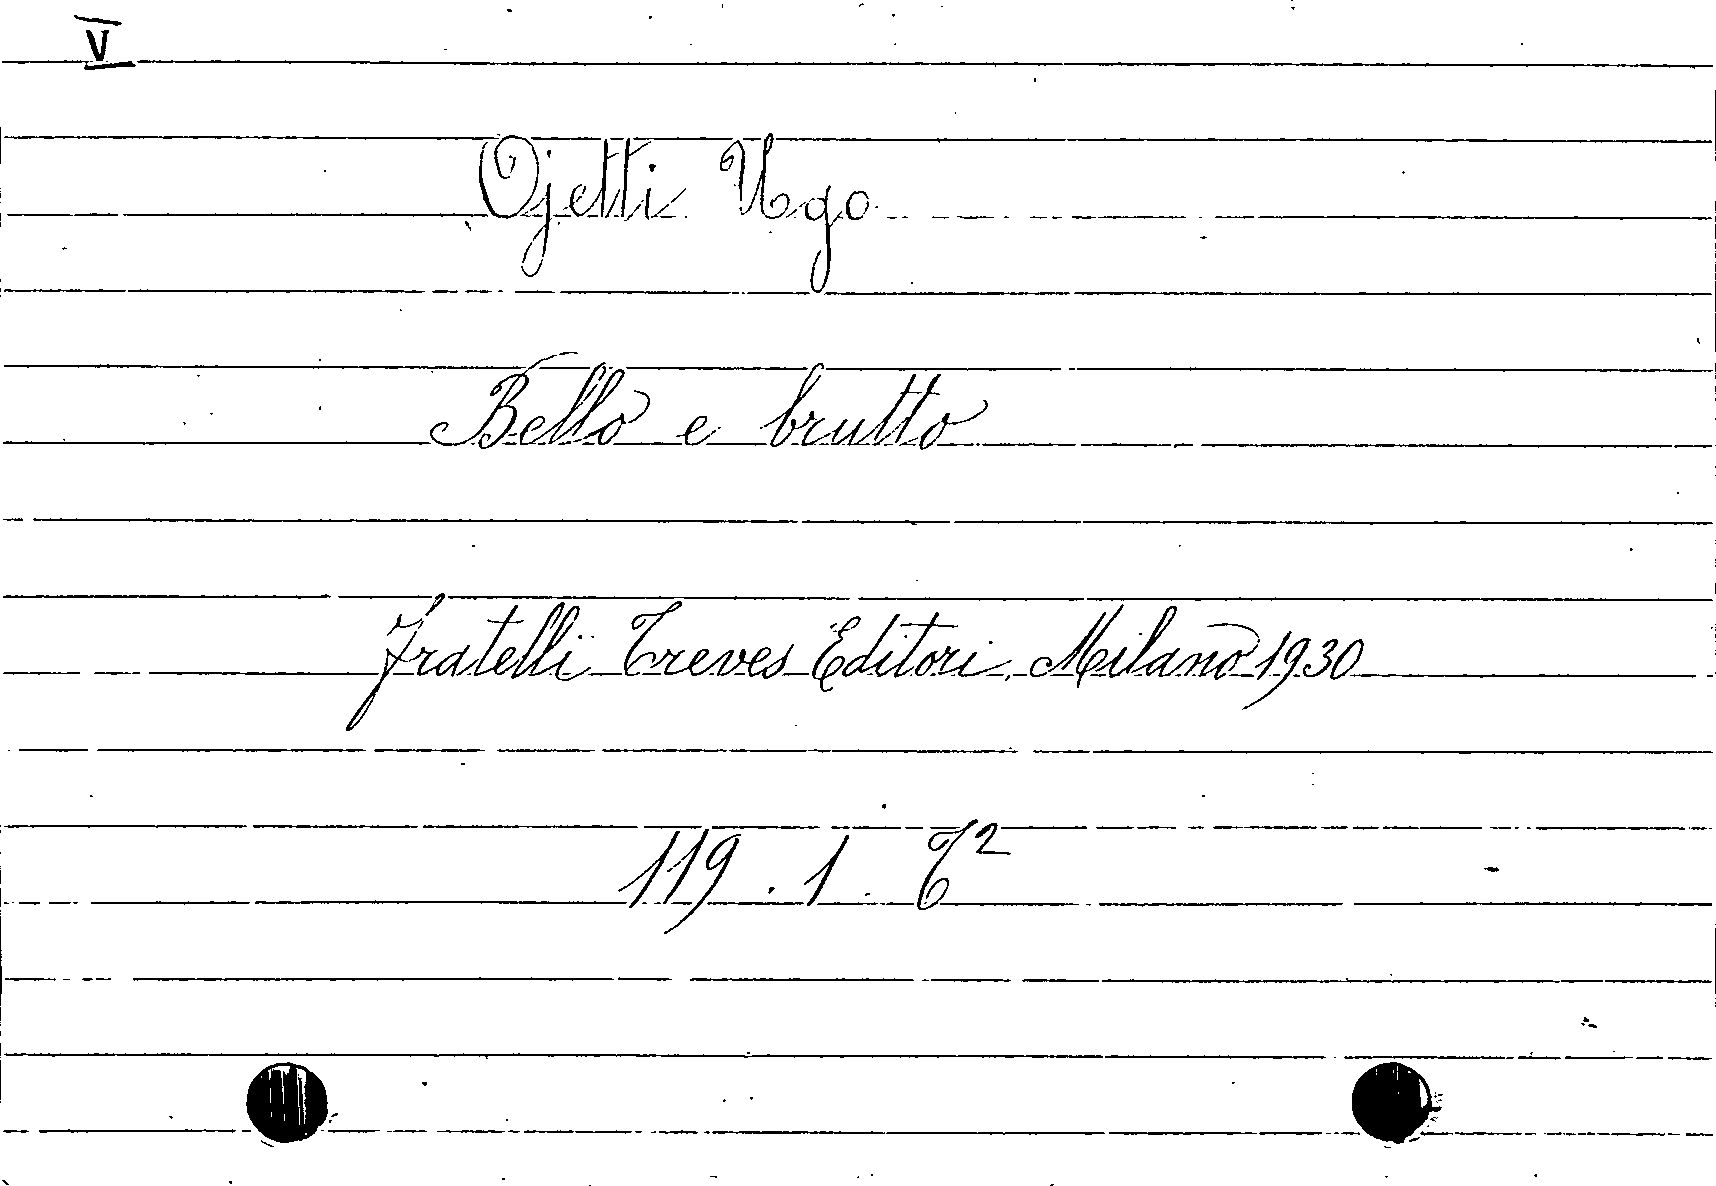 V
Ojetti Ugo
Bello e brutto
Fratelli Treves Editori, Milano 1930
119 . 1 . T²